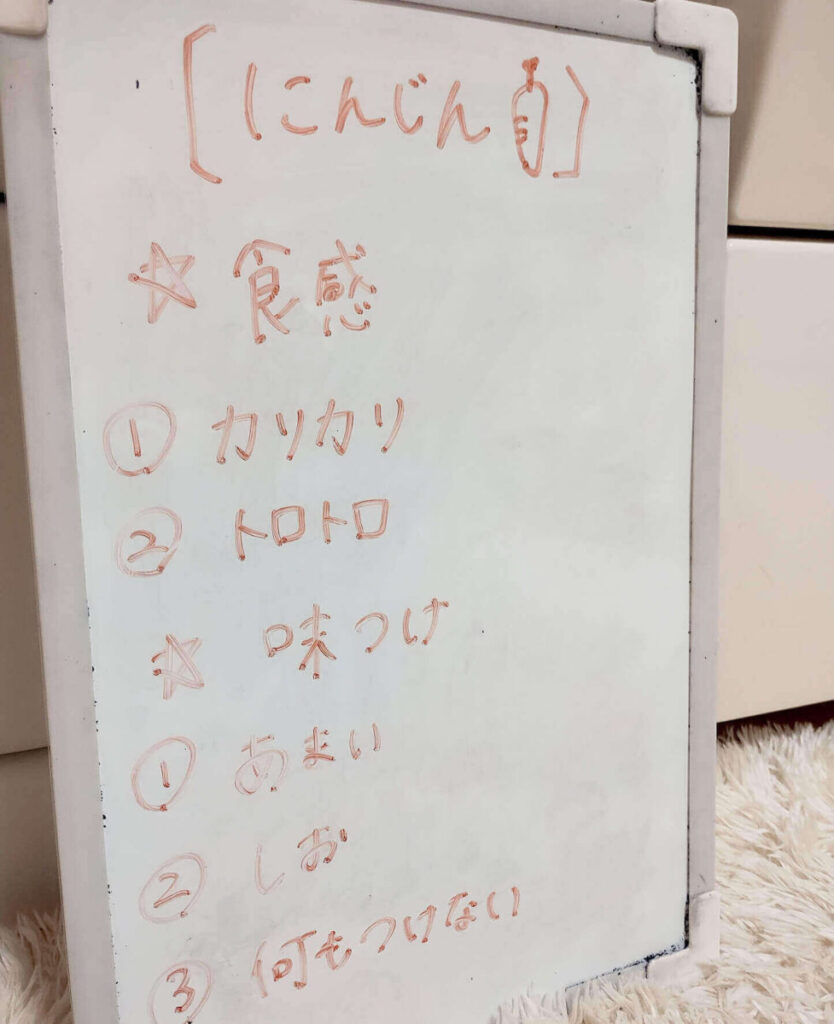 [にんじん]
☆ 食感
① カリカリ
② トロトロ
☆ 味つけ
① あまい
② しお
③ 何もつけない